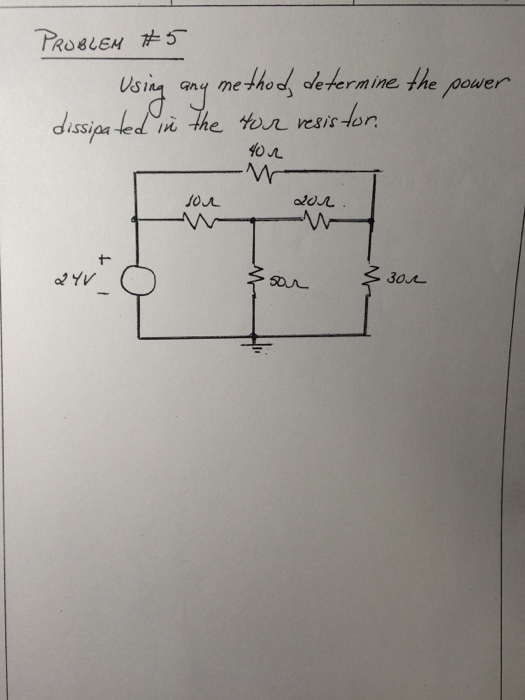 PROBLEM #5
Using any method, determine the power
dissipated in the 40Ω resistor.
40Ω
10Ω 20Ω.
+
24V
-
50Ω
30Ω